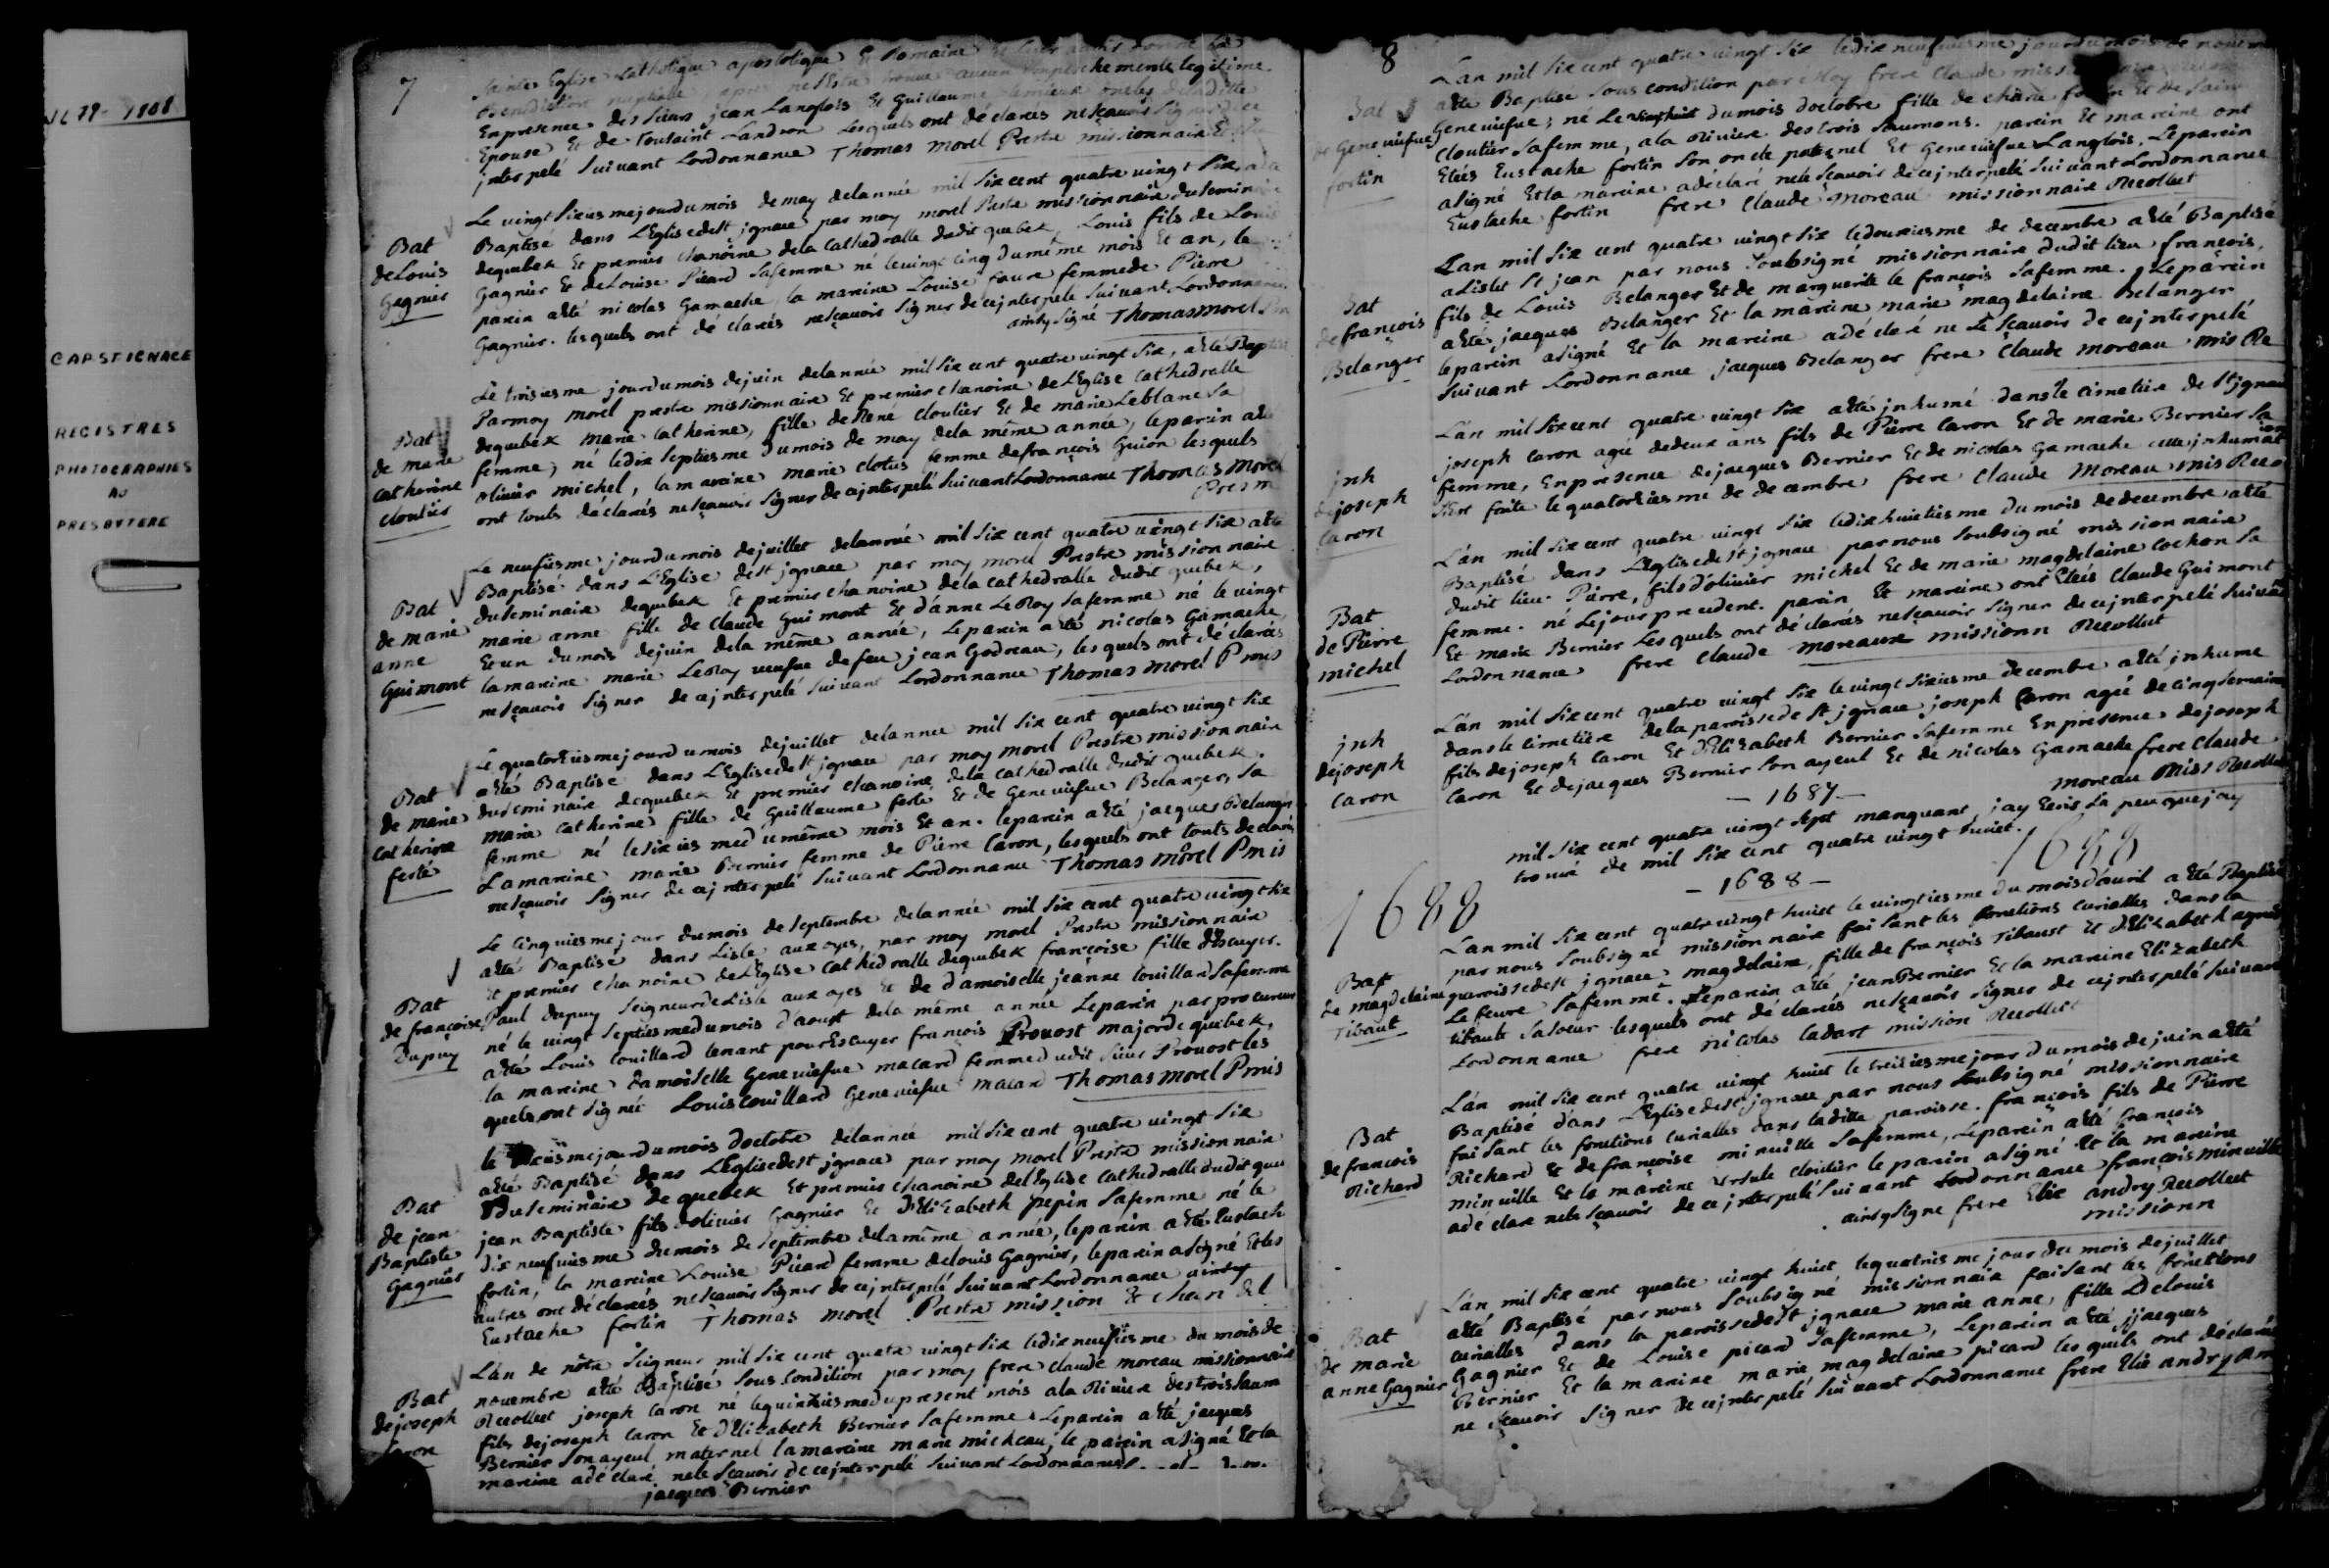 1679-1908
CAP ST IGNACE
REGISTRES
PHOTOGRAPHIES
AU
PRESBYTERE
7
Sainte Eglise catholique apostolique Et Romaine
Benediction nuptialle apres aucun Empeschement legitime.
En presence des sieurs jean Langlois Et Guillaume Lemieux oncles de laditte
Epouse Et de Toussaint Landron lesquels ont déclarés nesçavoir signer de ce
jnterpelé suivant Lordonnance Thomas Morel Prestre missionnaire
Bat
de Louis
Gagnier
Le vingt sixiesme jour du mois de may delannée mil six cent quatre vingt six, a été
Baptisé dans L'Eglise de st jgnace par moy morel Prestre missionnaire du seminaire
dequebek Et premier chanoine dela cathedralle dudit quebek, Louis fils de Louis
Gagnier Et de Louise Picard sa femme né le vingt cinq du même mois Et an, le
parein a été nicolas Gamache la mareine Louise faure femme de Pierre
Gagnier. lesquels ont déclarés nesçavoir signer de ce jnterpelé suivant Lordonnance
ainsy signé Thomas morel Pm
Bat
de marie
catherine
cloutier
Le troisiesme jour du mois de juin delannée mil six cent quatre vingt six, a été Baptisé
Par moy morel prestre missionnaire Et premier chanoine de L'Eglise cathedralle
dequebek marie catherine, fille de Rene cloutier Et de marie Leblanc sa
femme, né le dix septiesme du mois de may dela même année, le parein a été
olivier michel, la mareine marie clotus femme de françois Guion lesquels
ont touts déclarés nesçavoir signer de ce jnterpelé suivant Lordonnance Thomas Morel
Pres m
Bat
de marie
anne
Guimont
Le neufiesme jour du mois de juillet delannée mil six cent quatre vingt six a été
Baptisé dans L'Eglise de st jgnace par moy morel Prestre missionnaire
du seminaire dequebek Et premier chanoine dela cathedralle dudit quebek,
marie anne fille de Claude Guimont Et d'anne LeRoy sa femme né le vingt
Et un du mois de juin dela même année, Le parein a été nicolas Gamache,
la mareine marie LeRoy veufve de feu jean Godreau, lesquels ont déclarés
nesçavoir signer de ce jnterpelé suivant Lordonnance Thomas morel P mis
Bat
de marie
catherine
festé
Le quatorziesme jour du mois de juillet delannee mil six cent quatre vingt six
a été Baptisé dans L'Eglise de st jgnace par moy morel Prestre missionnaire
du seminaire dequebek Et premier chanoine dela cathedralle dudit quebek.
marie catherine fille de Guillaume festé Et de Geneviefve Belanger, sa
femme né le sixiesme du même mois Et an. le parein a été jacques Belanger
La mareine marie Bernier femme de Pierre Caron, lesquels ont touts declarés
nesçavoir signer de ce jnterpelé suivant Lordonnance Thomas Morel P mis
Bat
de françoise
Dupuy
Le cinquiesme jour du mois de septembre delannée mil six cent quatre vingt six
a été Baptisé dans Lisle aux oyes, par moy morel Prestre missionnaire
Et premier chanoine de L'Eglise cathedralle dequebek françoise fille d'Escuyer.
Paul dupuy seigneur de Lisle aux oyes Et de damoiselle jeanne Couillard sa femme
né le vingt septiesme du mois d'aoust dela même année Le parein par procureur
a été Louis Couillard tenant pour Escuyer françois Provost major de quebek,
la mareine damoiselle Geneviefve macard femme dudit sieur Provost les
quels ont signé Louis couillard Geneviefve macard Thomas Morel P mis
Bat
de jean
Baptiste
Gagnier
le jour du mois d'octobre delannée mil six cent quatre vingt six
a été Baptisé dans L'Eglise de st jgnace par moy morel Prestre missionnaire
du seminaire de quebek Et premier chanoine de l'Eglise cathedralle dudit que
jean Baptiste fils d'olivier Gagnier Et d'Elizabeth pepin sa femme né le
dix neufiesme du mois de septembre dela même année, le parein a été Eustach
fortin, la mareine Louise Picard femme de Louis Gagnier, le parein a signé Et les
autres ont déclarés nesçavoir signer de ce jnterpelé suivant Lordonnance ainsy
Eustache fortin Thomas morel Prestre mission & chan del
Bat
de joseph
Caron
L'an de nôtre seigneur mil six cent quatre vingt six le dix neufiesme du mois de
novembre a été Baptisé sous condition par moy frere claude moreau missionnaire
Recollect joseph Caron né le quinziesme du present mois a la Riviere des trois saum
fils de joseph Caron Et d'Elizabeth Bernier sa femme. Le parein a été jacques
Bernier son ayeul maternel la mareine marie micheau, le parein a signé Et la
mareine a déclaré nele sçavoir de ce jnterpelé suivant Lordonnance
jacques Bernier
8
Bat
de Geneviefve
fortin
L'an mil six cent quatre vingt six le dix neufviesme jour du mois de novem
a été Baptisé sous condition par moy frere Claude
Geneviefve; né Le vingt huit du mois d'octobre fille de charle fortin Et de sain
Cloutier sa femme, a la Riviere des trois saumons. parein Et mareine ont
Etées Eustache fortin son oncle paternel Et Geneviefve Langlois. Le parein
a signé Et la mareine a déclaré nele sçavoir de ce jnterpelé suivant Lordonnance
Eustache fortin frere Claude moreau missionnaire Recollect
Bat
de françois
Belanger
L'an mil six cent quatre vingt six le douziesme de decembre a été Baptizé
a Lislet st jean par nous soubsigné missionnaire dudit lieu françois,
fils de Louis Belanger Et de marguerite le françois sa femme. Le parein
a été, jacques Belanger Et la mareine marie magdelaine Belanger
le parein a signé Et la mareine a déclaré ne le sçavoir de ce jnterpelé
suivant Lordonnance jacques Belanger frere Claude moreau mis Re
jnh
de joseph
Caron
L'an mil six cent quatre vingt six a été jnhumé dans le cimetiere de st jgnace
joseph Caron agé de deux ans fils de Pierre Caron Et de marie Bernier sa
femme, En presence de jacques Bernier Et de nicolas Gamache cette jnhumation
s'est faite le quatorziesme de decembre frere Claude Moreau mis Reco
Bat
de Pierre
michel
L'an mil six cent quatre vingt six le dix huictiesme du mois de decembre a été
Baptisé dans L'Eglise de st jgnace par nous soubsigné missionnaire
dudit lieu. Pierre, fils d'olivier michel Et de marie magdelaine Cochon sa
femme. né Le jour precedent. parein Et mareine ont Etées Claude Guimont
Et marie Bernier Lesquels ont déclarés nesçavoir signer de ce jnterpelé suivant
Lordonnance frere Claude moreaux missionn Recollect
jnh
de joseph
Caron
L'an mil six cent quatre vingt six le vingt sixiesme decembre a été jnhumé
dans le cimetière dela paroisse de st jgnace joseph Caron agé de cinq semaines
fils de joseph Caron Et d'Elizabeth Bernier sa femme En présence de joseph
Caron Et de jacques Bernier son ayeul Et de nicolas Gamache frere Claude
moreau Miss Recollect
- 1687 -
mil six cent quatre vingt sept manquant, jay Ecris Le peu que jay
trouvé de mil six cent quatre vingt huict.
1688
- 1688 -
1688
Bapt
de magdelaine
Tibaut
L'an mil six cent quatre vingt huict le vingtiesme du mois d'avril a été Baptisé
par nous soubsigné missionnaire faisant les fonctions curialles dans la
paroisse de st jgnace magdelaine, fille de françois Tibaust Et d'Elizabeth agnes
Le fevre sa femme. Le parein a été jean Bernier Et la mareine Elizabeth
tibaut sa soeur lesquels ont déclarés nesçavoir signer de ce jnterpelé suivant
Lordonnance frere Nicolas Cadart mission Recollect
Bat
de francois
Richard
L'an mil six cent quatre vingt huict le treiziesme jour du mois de juin a été
Baptisé dans L'Eglise de st jgnace par nous soubsigné missionnaire
faisant les fonctions curialles dans laditte paroisse. françois fils de Pierre
Richard Et de françoise minville sa femme, Le parein a été françois
minville Et la mareine ursule cloutier le parein a signé Et la mareine
a declaré nele sçavoir de ce jnterpelé suivant Lordonnance françois minville
ainsy signe frere Elie andry Recollect
missionn
Bat
de marie
anne Gagnier
L'an mil six cent quatre vingt huict le quatriesme jour du mois de juillet
a été Baptisé par nous soubsigné missionnaire faisant les fonctions
curialles dans la paroisse de st jgnace marie anne, fille de Louis
Gagnier Et de Louise picard sa femme, Le parein a été jacques
Bernier Et la mareine marie magdelaine picard lesquels ont déclarés
ne sçavoir signer de ce jnterpelé suivant Lordonnance frere Elie andry R m